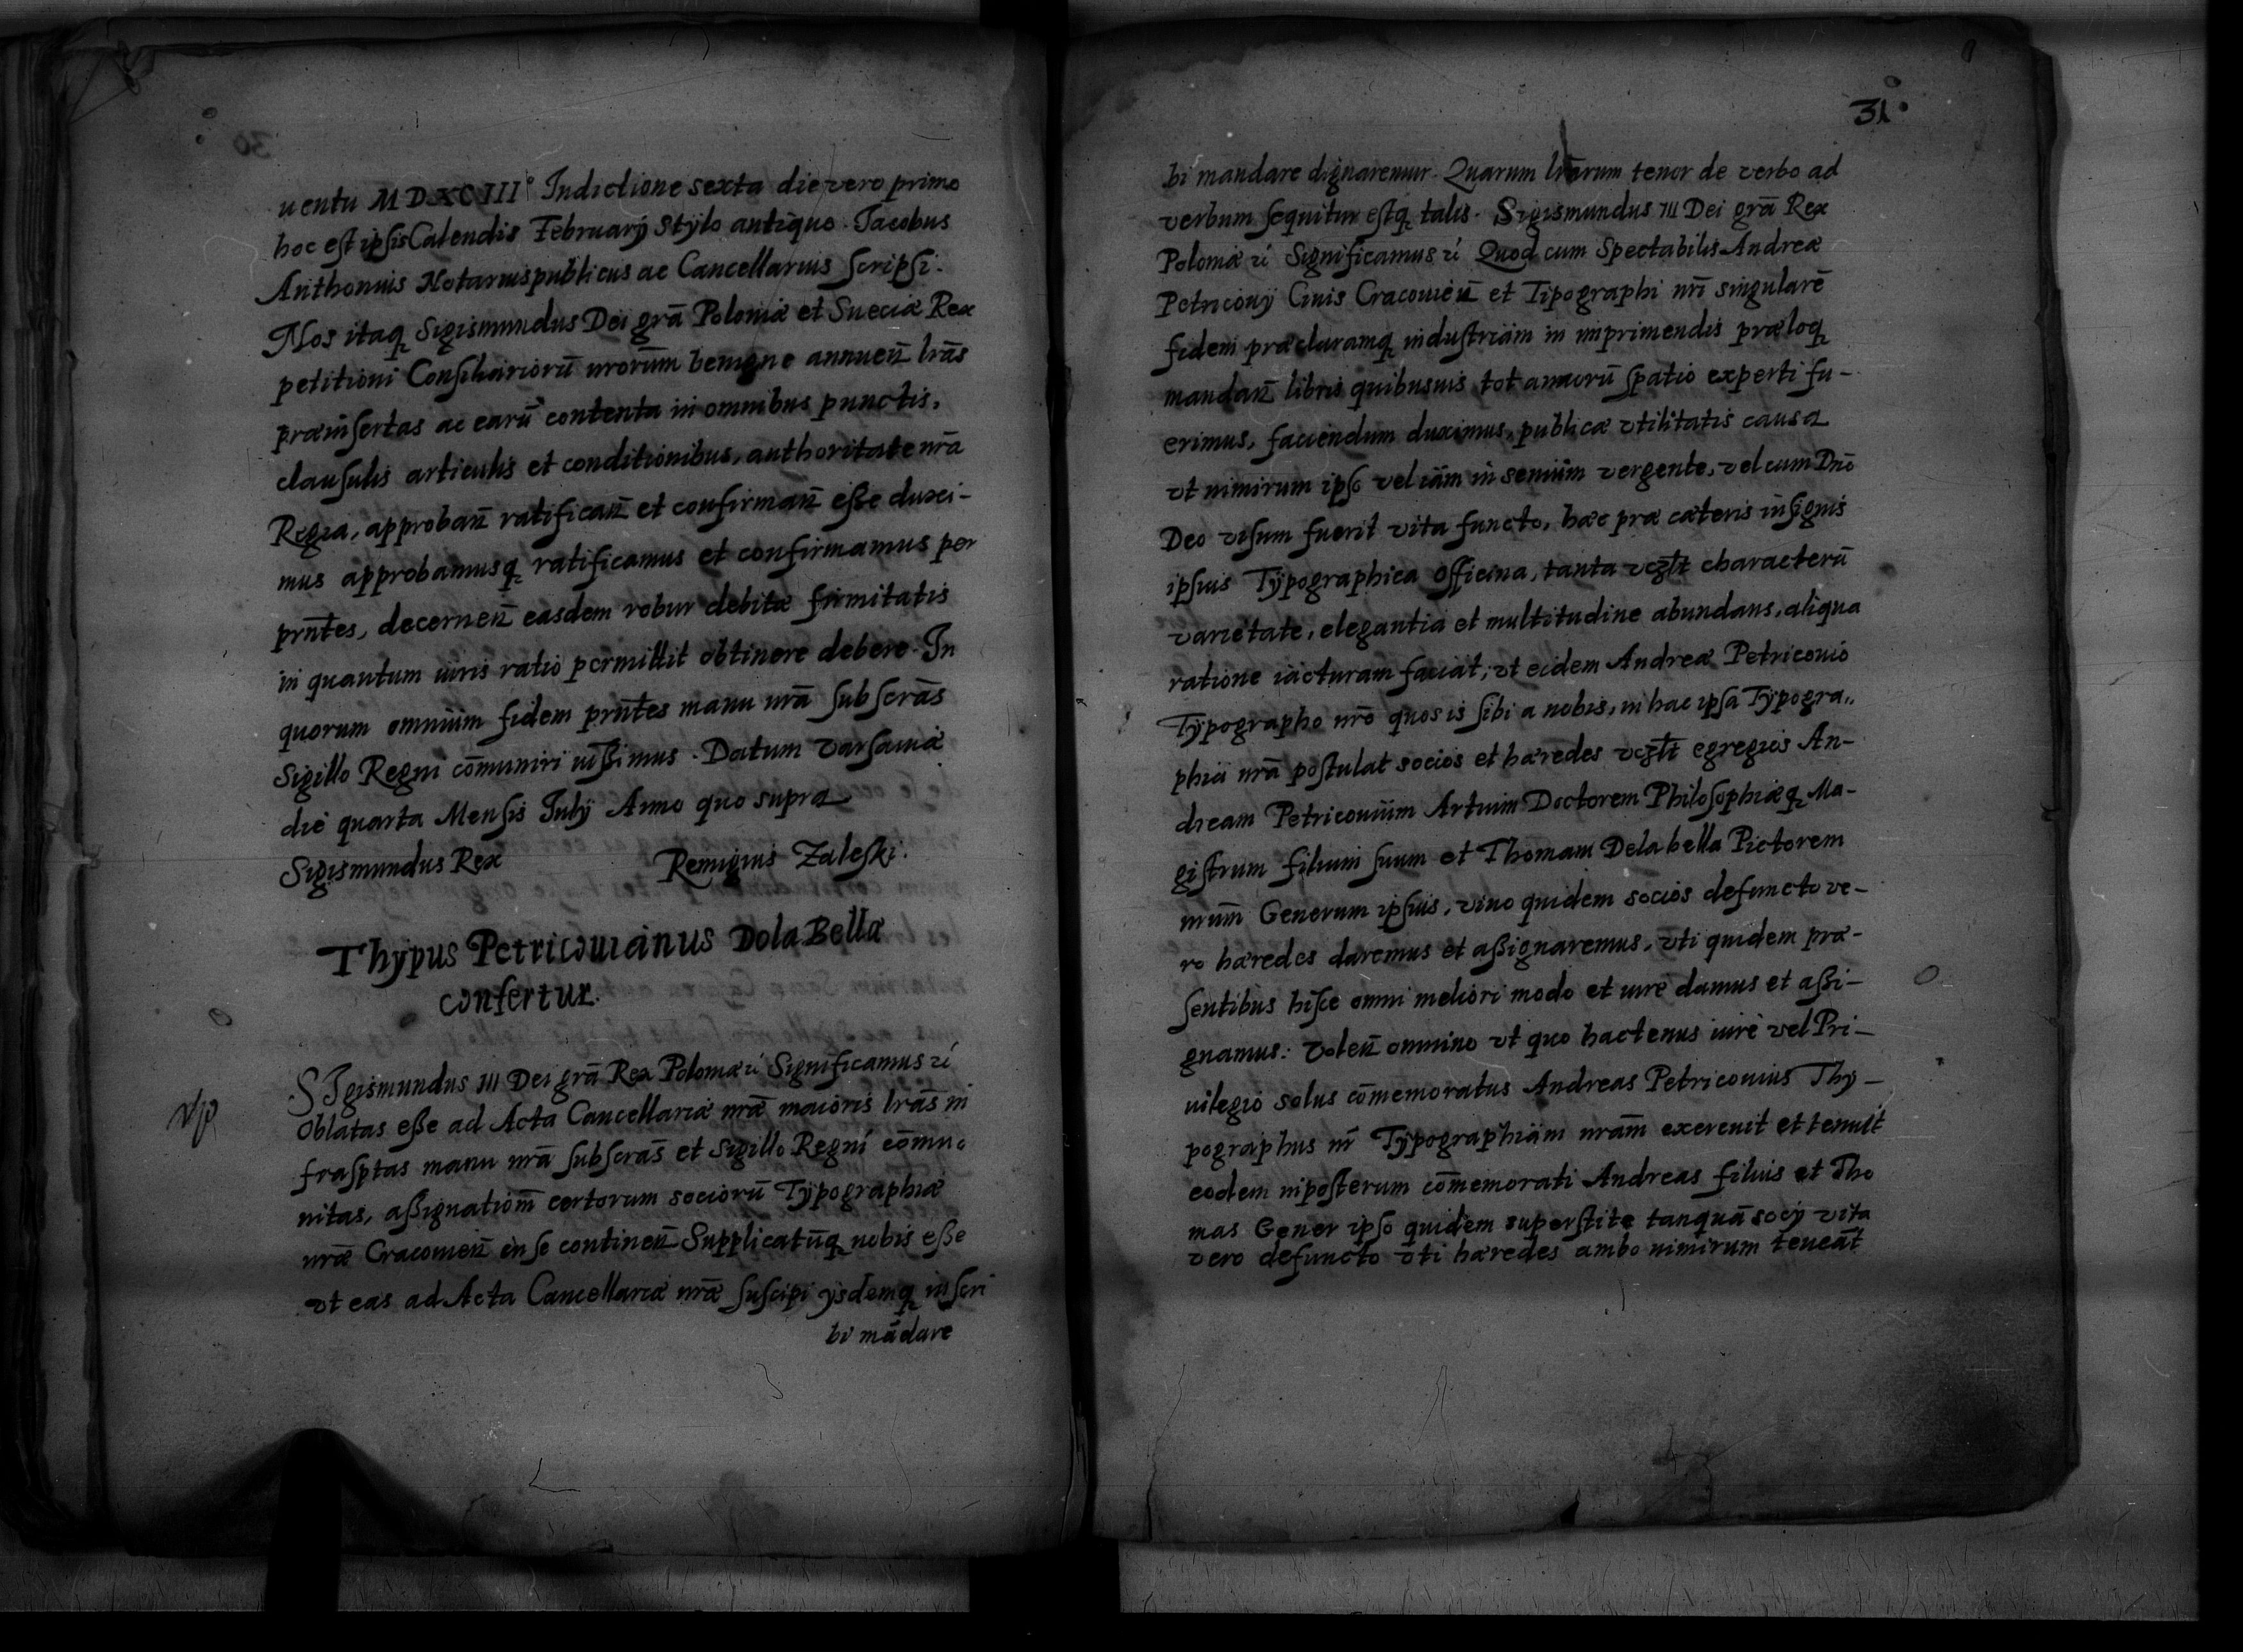 uentu MDXCIII° Indictione sexta die vero primo
hoc est ipsis Calendis Februarÿ Stÿlo antiquo. Jacobus
Anthonius Notarius publicus ac Cancellarius scripsi.
Nos itaq Sigismundus Dei grā Poloniæ et Sueciæ Rex
petitioni Consiliariorū nrorum benigne annueñ lrās
præinsertas ac earū contenta in omnibus punctis,
clausulis articulis et conditionibus, authoritate nrā
Regia, approbañ ratificañ et confirmañ eße duxi-
mus approbamusq ratificamus et confirmamus per
prn̄tes, decerneñ easdem robur debitæ firmitatis
in quantum iuris ratio permittit obtinere debere. In
quorum omnium fidem prn̄tes manu nrā subscrās
Sigillo Regni cōmuniri iußimus. Datum Varsauiæ
die quarta Mensis Julÿ Anno quo supra
Sigismundus Rex Remigius Zaleski.
Thÿpus Petricouianus Dola Bellæ
confertur.
SIgismundus III Dei grā Rex Poloniæ zí Significamus zí
Oblatas eße ad Acta Cancellariæ nræ maioris lrās in
frasptas manu nrā subscrās et sigillo Regni cōmu-
nitas, aßignationm̄ certorum sociorū Tÿpographiæ
nræ Cracouieñ in se contineñ Supplicatūq nobis eße
vt eas ad Acta Cancellariæ nræ suscipi ÿsdemq inscri
bi mādare
31.
bi mandare dignaremur. Quarum lrārum tenor de verbo ad
verbum sequitur estq talis. Sigismundus III Dei grā Rex
Poloniæ zí Significamus zí Quod cum Spectabilis Andreæ
Petricouÿ Ciuis Cracouieñ et Tipographi nrī singularē
fidem præclaramq industriam in imprimendis præloq
mandañ libris quibusuis tot annorū spatio experti fu-
erimus, faciendum duximus, publicæ vtilitatis causa
vt nimirum ipso vel iam in senium vergente, vel cum Dnō
Deo visum fuerit vita functo, hæc præ cæteris insignis
ipsius Tÿpographica officina, tanta vczlt characterū
varietate, elegantia et multitudine abundans, aliqua
ratione iacturam faciat; vt eidem Andreæ Petriconio
Tÿpographo nrō quos is sibi a nobis, in hac ipsa Tÿpogra„
phia nrā postulat socios et hæredes vczlt egregios An-
dream Petricouium Artium Doctorem Philosophiæq Ma-
gistrum filium suum et Thomam Delabella Pictorem
nrum̄ Generum ipsius, viuo quidem socios defuncto ve-
ro hæredes daremus et aßignaremus, vti quidem præ-
sentibus hisce omni meliori modo et iure damus et aßi-
gnamus: Voleñ omnino vt quo hactenus iure vel Pri-
uilegio solus cōmemoratus Andreas Petriconius Thÿ-
pographus nr̄ Tÿpographiam nram̄ exercuit et tenuit
eodem inposterum cōmemorati Andreas filius et Tho
mas Gener ipso quidem superstite tanquā socÿ vita
vero defuncto vti hæredes ambo nimirum teneāt